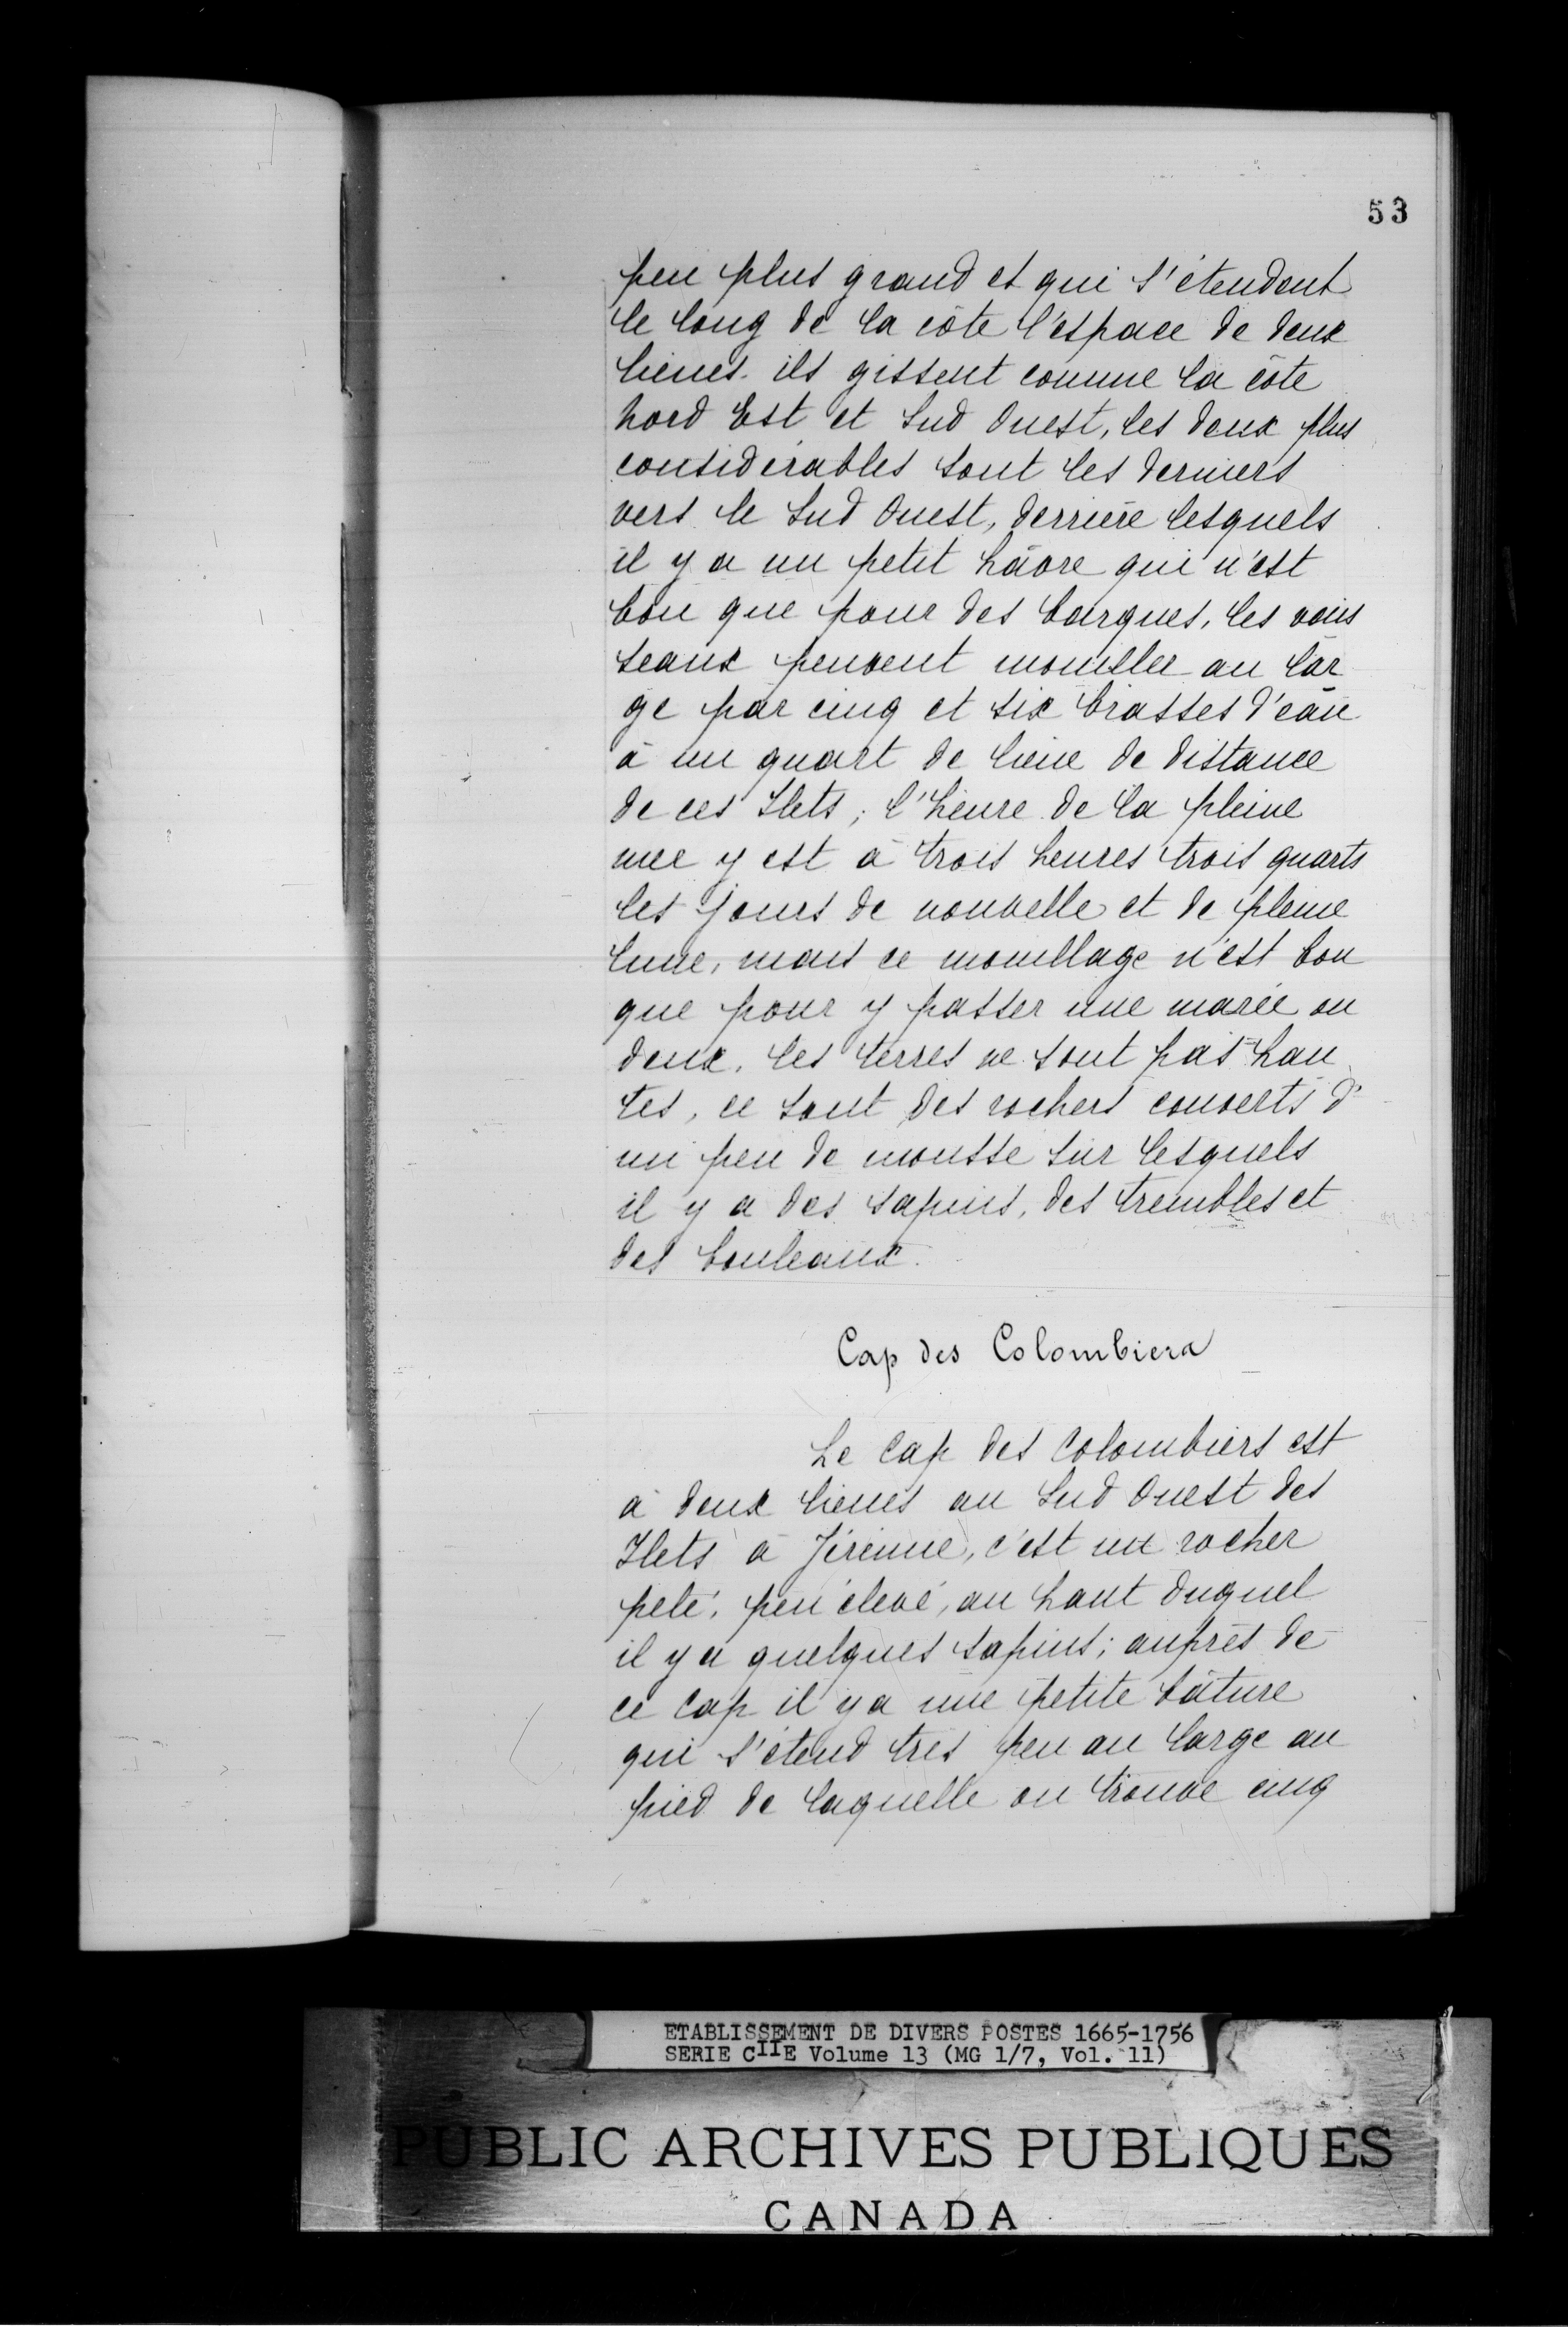 53
peu plus grand et qui s'étendent
le long de la côte l'espace de deux
lieues. ils gissent comme la côte
Nord Est et Sud Ouest, les deux plus
considérables sont les derniers
vers le Sud Ouest, derrière lesquels
il y a un petit hâvre qui n'est
bon que pour des barques, les vais
seaux peuvent mouiller au lar
ge par cinq et six brasses d'eau
à un quart de lieue de distance
de ces Ilets; l'heure de la pleine
mer y est à trois heures trois quarts
les jours de nouvelle et de pleine
lune, mais ce mouillage n'est bon
que pour y passer une marée ou
deux, les terres ne sont pas hau
tes, ce sont des rochers couverts d'
un peu de mousse sur lesquels
il y a des sapins, des trembles et
des bouleaux.
Cap des Colombiers
Le Cap des Colombiers est
à deux lieues au Sud Ouest des
Ilets à Jérémie, c'est un rocher
pelé, peu élevé, au haut duquel
il y a quelques sapins; auprès de
ce Cap il y a une petite bâture
qui s'étend très peu au large au
pied de laquelle on trouve cinq
ETABLISSEMENT DE DIVERS POSTES 1665-1756
SERIE CIIE Volume 13 (MG 1/7, Vol. 11)
PUBLIC ARCHIVES PUBLIQUES
CANADA